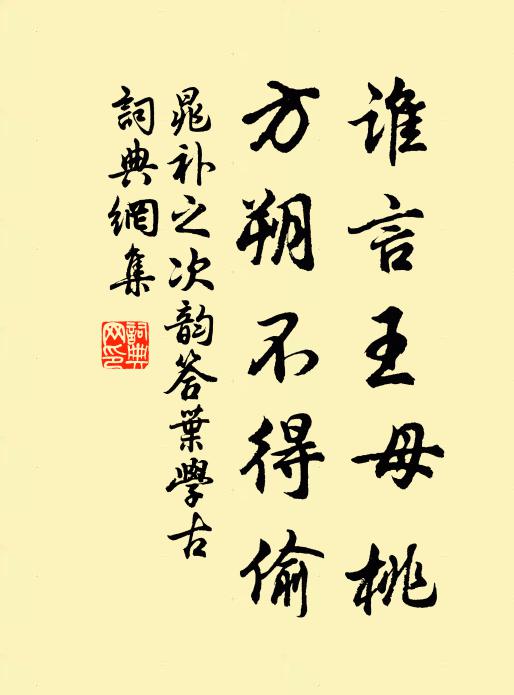 谁言王母桃
方朔不得偷
晁补之次韵答葉學古
詞典網集
詞典网印